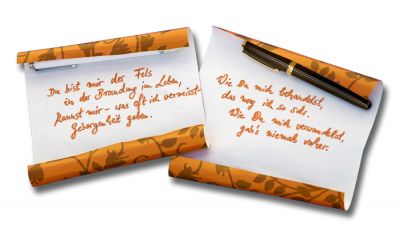 Du bist mir der Fels
in der Brandung im Leben,
kannst mir – was oft ich vermisst –
Geborgenheit geben.
Wie Du mich behandelst,
das mag ich so sehr.
Wie Du mich verwandelst,
gab's niemals vorher.